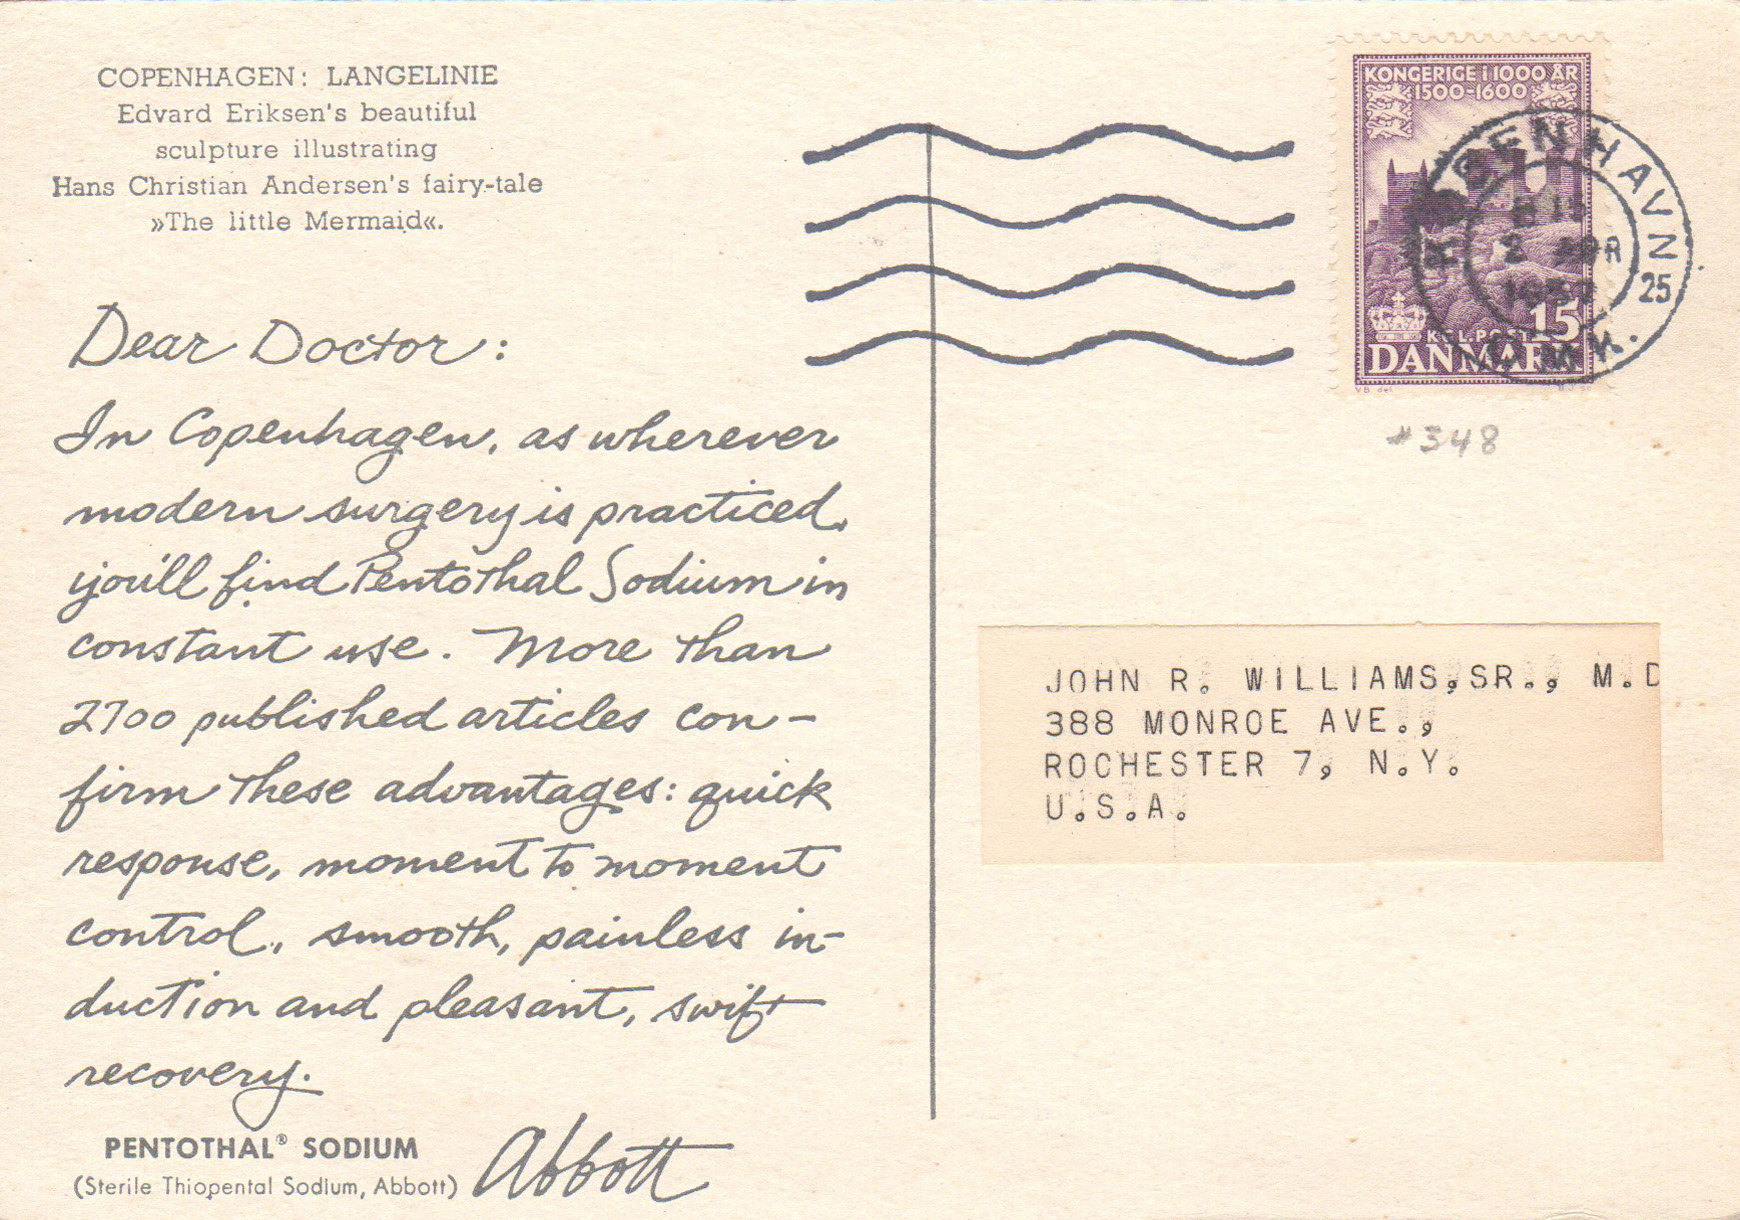 COPENHAGEN: LANGELINIE
Edvard Eriksen's beautiful
sculpture illustrating
Hans Christian Andersen's fairy-tale
»The little Mermaid«.
Dear Doctor:
In Copenhagen, as wherever
modern surgery is practiced,
you'll find Pentothal Sodium in
constant use. More than
2700 published articles con-
firm these advantages: quick
response, moment to moment
control, smooth, painless in-
duction and pleasant, swift
recovery.
Abbott
PENTOTHAL® SODIUM
(Sterile Thiopental Sodium, Abbott)
KONGERIGE I 1000 ÅR
1500-1600
KGL.POST 15
DANMARK
V.B. del.
KØBENHAVN
2 APR
25
OMK.
#348
JOHN R. WILLIAMS,SR., M.D
388 MONROE AVE.,
ROCHESTER 7, N.Y.
U.S.A.